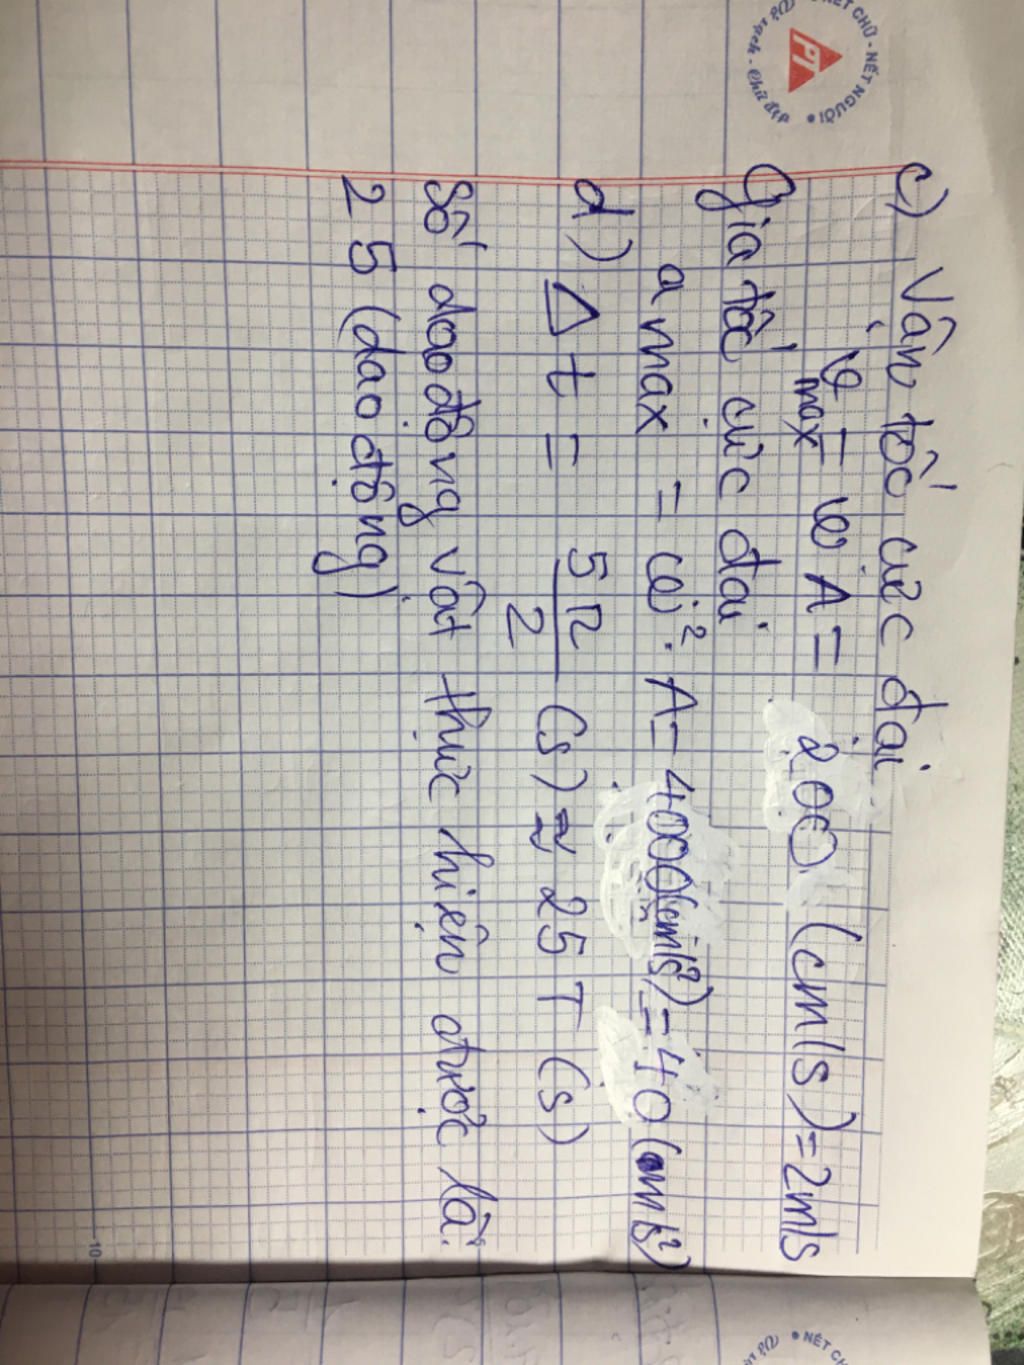 NÉT CHỮ - NẾT NGƯỜI
sạch - Chữ đẹp
PT
c) Vận tốc cực đại
vmax = ωA = 200 (cm/s) = 2m/s
Gia tốc cực đại
a max = ω². A = 4000(cm/s²) = 40 (m/s²)
d) Δt = 5π/2 (s) ≈ 25 T (s)
Số dao động vật thực hiện được là:
25 (dao động)
10
NÉT